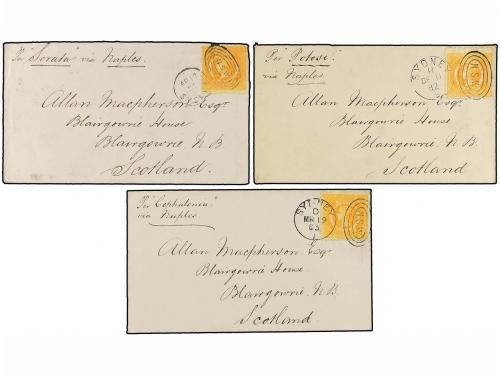 Per "Sorata" via Naples.
NSW
Allan Macpherson Esqr.
Blairgowrie House
Blairgowrie N.B.
Scotland.
Per "Potosi"
via Naples
SYDNEY
82
NSW
Allan Macpherson Esqr.
Blairgowrie House
Blairgowrie N.B.
Scotland.
Per "Cephalonia"
via Naples.
SYDNEY
D
MR 19
83
NSW
Allan Macpherson Esqr.
Blairgowrie House
Blairgowrie. N.B.
Scotland.